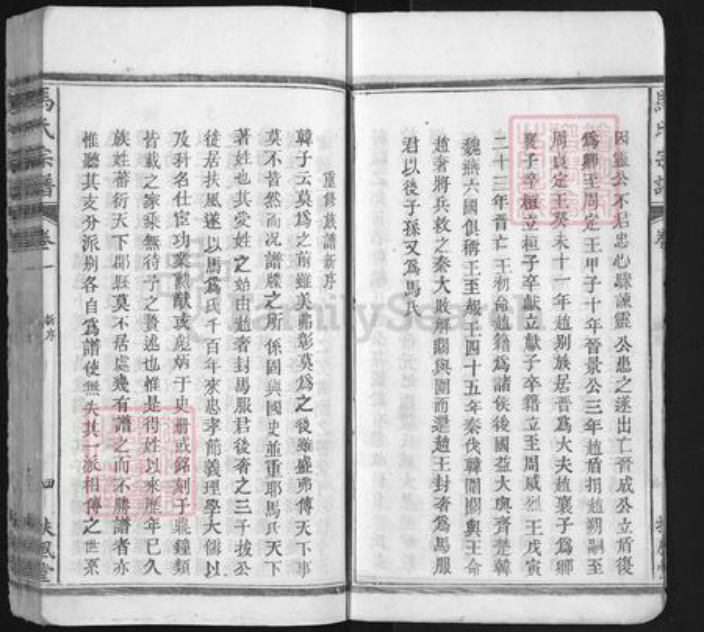 因靈公不君忠心驟諫靈公患之遂出亡晉成公立盾復
為卿王周定王甲子十年晉景公三年趙盾捐趙朔嗣至
周貞定王癸未十一年趙別族居晉為大夫趙襄子為卿
襄子卒桓立桓子卒獻立獻子卒籍立至周威烈王戊寅
二十三年晉亡王初命趙籍為諸侯後國益大與齊楚韓
魏燕六國俱稱王至赧王四十五年秦伐韓圍閼與王命
趙奢將兵救之秦大敗解閼與圍而還趙王封奢為馬服
君以後子孫又為馬氏
馬氏宗譜
重修族譜新序
韓子云莫為之前雖美弗彰莫為之後雖盛弗傳天下事
莫不皆然而況譜牒之所係固與國史並重耶馬氏天下
著姓也其受姓之始由趙奢封馬服君後奢之三子拔公
從居扶風遂以馬為氏千百年來忠孝節義理學大儒以
及科名仕宦功業勳猷或彪炳于史冊或銘刻于鼎鐘類
皆載之家乘無待予之贅述也惟是得姓以來歷年已久
族姓蕃衍天下郡縣莫不居處幾有譜之而不勝譜者亦
惟聽其支分派別各自為譜使無失其一派相傳之世系
馬氏宗譜
卷一
新序
四
扶風堂
FamilySearch